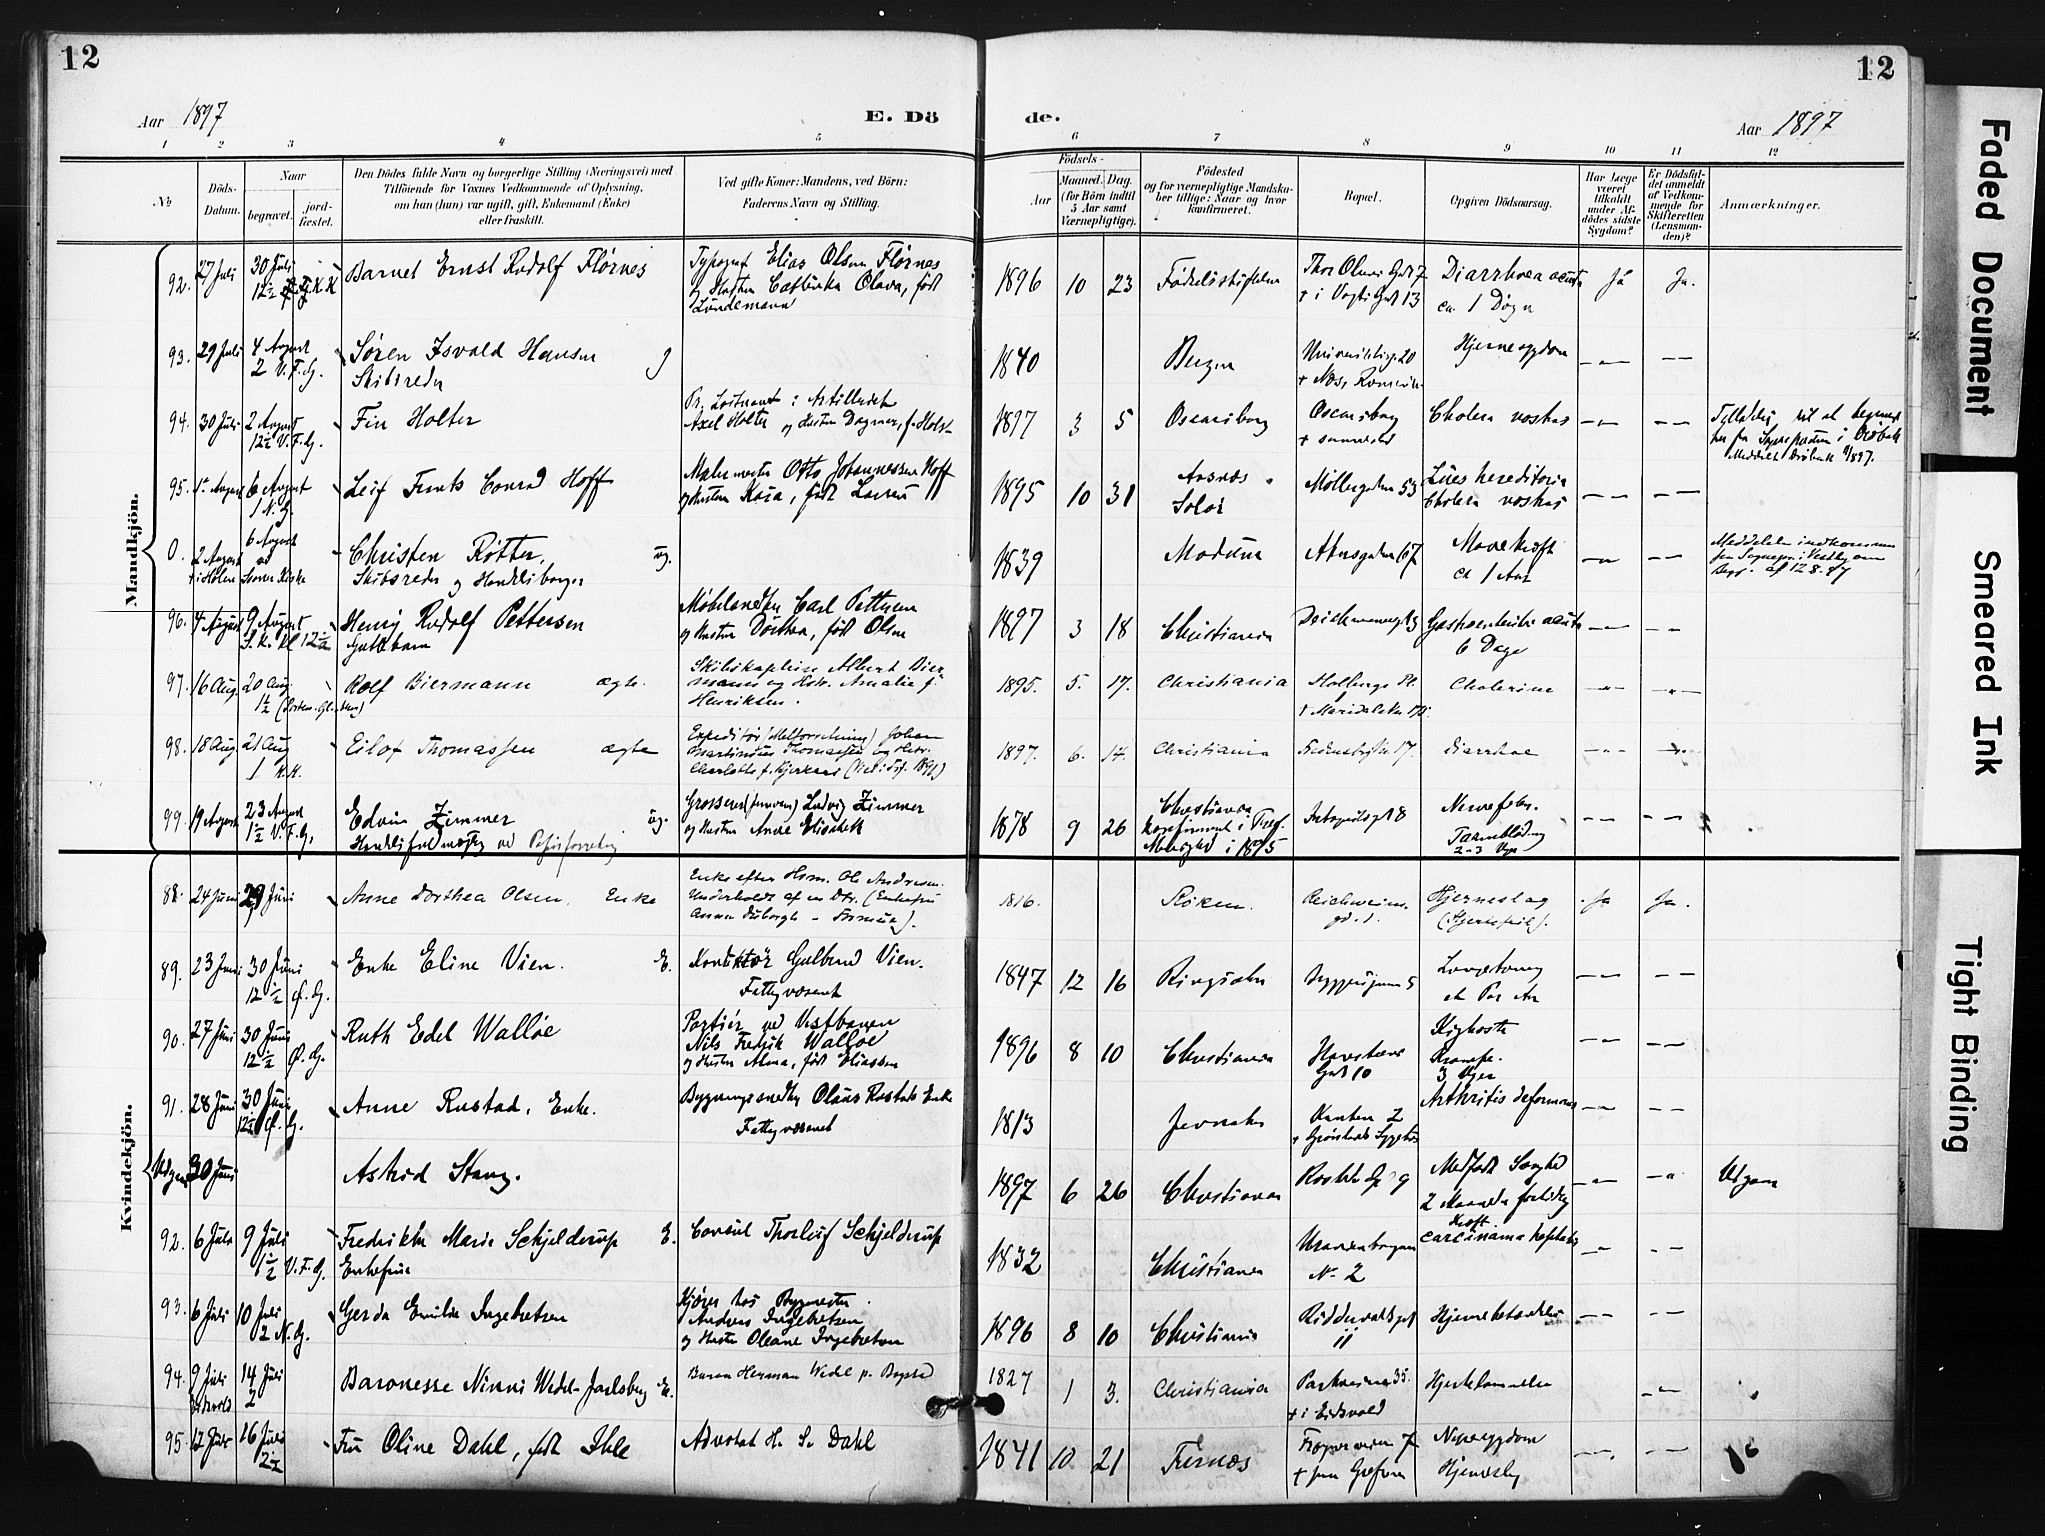 12
12
Aar 1897
E. Dö
de.
Aar 1897
1 2 3 4 5 6 7 8 9 10 11 12
№
Döds-
Datum.
Naar
begravet.
jord-
fæstet.
Den Dödes fulde Navn og borgerlige Stilling (Næringsvei) med
Tilföiende for Voxnes Vedkommende af Oplysning,
om han (hun) var ugift, gift, Enkemand (Enke)
eller fraskilt.
Ved gifte Koner: Mandens, ved Börn:
Faderens Navn og Stilling.
Födsels-
Aar
Maaned. Dag.
(for Börn indtil
5 Aar samt
Værnepligtige).
Födested
og for værnepligtige Mandska-
ber tillige: Naar og hvor
konfirmeret.
Bopæl.
Opgiven Dödsaarsag.
Har Læge
været
tilkaldt
under Af-
dödes sidste
Sygdom?
Er Dödsfal-
det anmeldt
af Vedkom-
mende for
Skifteretten
(Lensman-
den)?
Anmærkninger.
Mandkjön.
92. 27 Juli
30 Juli
12½
Barnet Ernst Rudolf Flörnes
Typograf Elias Olsen Flörnes
og Hustru Cathinka Olava, født
Lundemann
1896 10 23
Fødselsstiftelsen
Thor Olsens Gade 7
+ i Vogts Gade 13
Diarrhoea acuta
ca. 1 Døgn
Ja
Ja.
93. 29 Juli
4 August
2 V. F. G.
Søren Isvald Hansen g
Skibsreder
1840
Bergen
Universitetsg. 20
+ Næs, Romerike
Hjernesygdom
94. 30 Juli
2 August
12½ V. F. G.
Fin Holter
Pr. Løitnant i Artilleriet
Axel Holter og Hustru Dagmar, f. Holst
1897 3 5
Oscarsborg
Oscarsborg
+ sammesteds
Cholera nostras
95. 1ste August
6 August
1 N. G.
Leif Frants Conrad Hoff
Malermester Otto Johannessen Hoff
og Hustru Kaia, født Larsen
1895 10 31
Aasnæs
Solør
Møllergaden 53
Lues hereditaria
Cholera nostras
0. 2 August
+ i Holen
6 August
ved
Kirke
Christen Røtter, ug.
Skibsreder og Handelsborger
1839
Modum
Akersgaden 67
Mavekræft
ca 1 Aar
Meddelelse indkommen
fra Sognepr. i Vestby om
Begr. af 12.8.97
96. 4 August
9 August
S. K. Kl 12½
Henry Rudolf Pettersen
Guttebarn
Møbelsnedker Carl Pettersen
og Hustru Dorthea, født Olsen
1897 3 18
Christiania
Deichmansgd 3
Gastroenteritis acuta
6 Dage
97. 16 Aug.
20 Aug.
1½
Rolf Biermann ægte.
Skibskaptein Albert Bier-
mann og Hstr. Amalie f.
Henriksen.
1895. 5. 17.
Christiania
+ Maridalsvn 175
Cholerine
98. 18 Aug.
21 Aug
1 K. K.
Eilof Thomassen ægte
Expeditör (Melforretning) Johan
Martinius Thomassen og Hstr.
Charlotte f. Kjerkaas (Viet i Tsf. 1891)
1897. 6. 14.
Christiania
Fredensborgvn 17.
Diarrhoe
99. 19 August
23 August
1½ V. F. G.
Edvin Zimmer ug.
Handelsfuldmægtig ved Pelsforretning
Grosserer Ludvig Zimmer
og Hustru Anne Elisabeth
1878 9 26
Christiania
Konfirmeret i Tref.
Menighed i 1895
Industrigt 8
Nervefeber.
Tarmblødning
2-3 Uger
Kvindekjön.
88. 24 Juni
29 Juni
Anne Dorthea Olsen. Enke
Enke efter Hsm. Ole Andresen.
Underholdt af en Dtr. (Enkefru
1816.
Röken.
Reichweins-
gd. 1.
Hjerneslag
(Hjertefeil).
Ja
Ja.
89. 23 Juni
30 Juni
12½ Ø. G.
Enke Eline Vien. E.
Konduktør Gulbrand Vien.
Fattigvæsenet
1847 12 16
Ringsaker
5
Lungetæring
et Par Aar
90. 27 Juni
30 Juni
12½ Ø. G.
Ruth Edel Walløe
Portier ved Vestbanen
Nils Fredrik Walløe
og Hustru Alma, født Eliassen
1896 8 10
Christiania
Gade 10
Kighoste
Krampe.
3 Uger
91. 28 Juni
30 Juni
12½ Ø. G.
Anne Rustad, Enke.
Bygningssnedker Olaus Rustads Enke
Fattigvæsenet
1813
Jevnaker
2
+ Grønlands Sygehus
Arthritis deformans
Udgaar 30 Juni
Astrid Stang.
1897 6 26
Christiania
9
Medfødt Svaghed
2 Maaneder for tidlig
Udgaar
92. 6 Juli
9 Juli
1½ V. F. G.
Fredrikke Marie Schjelderup E.
Enkefrue
Consul Thorleif Schjelderup
1832
Christiania
Uranienborgvn
No. 2
Kræft.
Carcinoma hepatis
93. 6 Juli
10 Juli
2 N. G.
Gerda Emilie Ingebretsen
Kjører hos Bygmester
Andreas Ingebretsen
og Hustru Oleane Ingebretsen
1896 8 10
Christiania
Riddervoldsgd
11
Hjernebetændelse
94. 9 Juli
Eidsvold
14 Juli
2
Baronesse Ninni Wedel-Jarlsberg E.
Baron Herman Wedel p. Bogstad
1827 1 3.
Christiania
Parkveien 35.
+ i Eidsvold
Hjertelammelse
95. 12 Juli
16 Juli
2½
Fru Oline Dahl, født Ihle
Advokat H. S. Dahl
1841 10 21
Fognerveien 7
+ paa Grefsen
Nyresygdom
Hjerneslag
Faded Document
Smeared Ink
Tight Binding